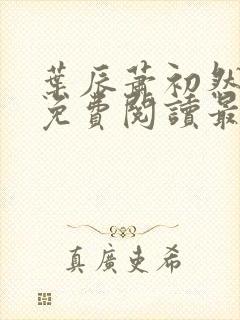 葉辰蕭初然
免費閱讀最
真廣史希